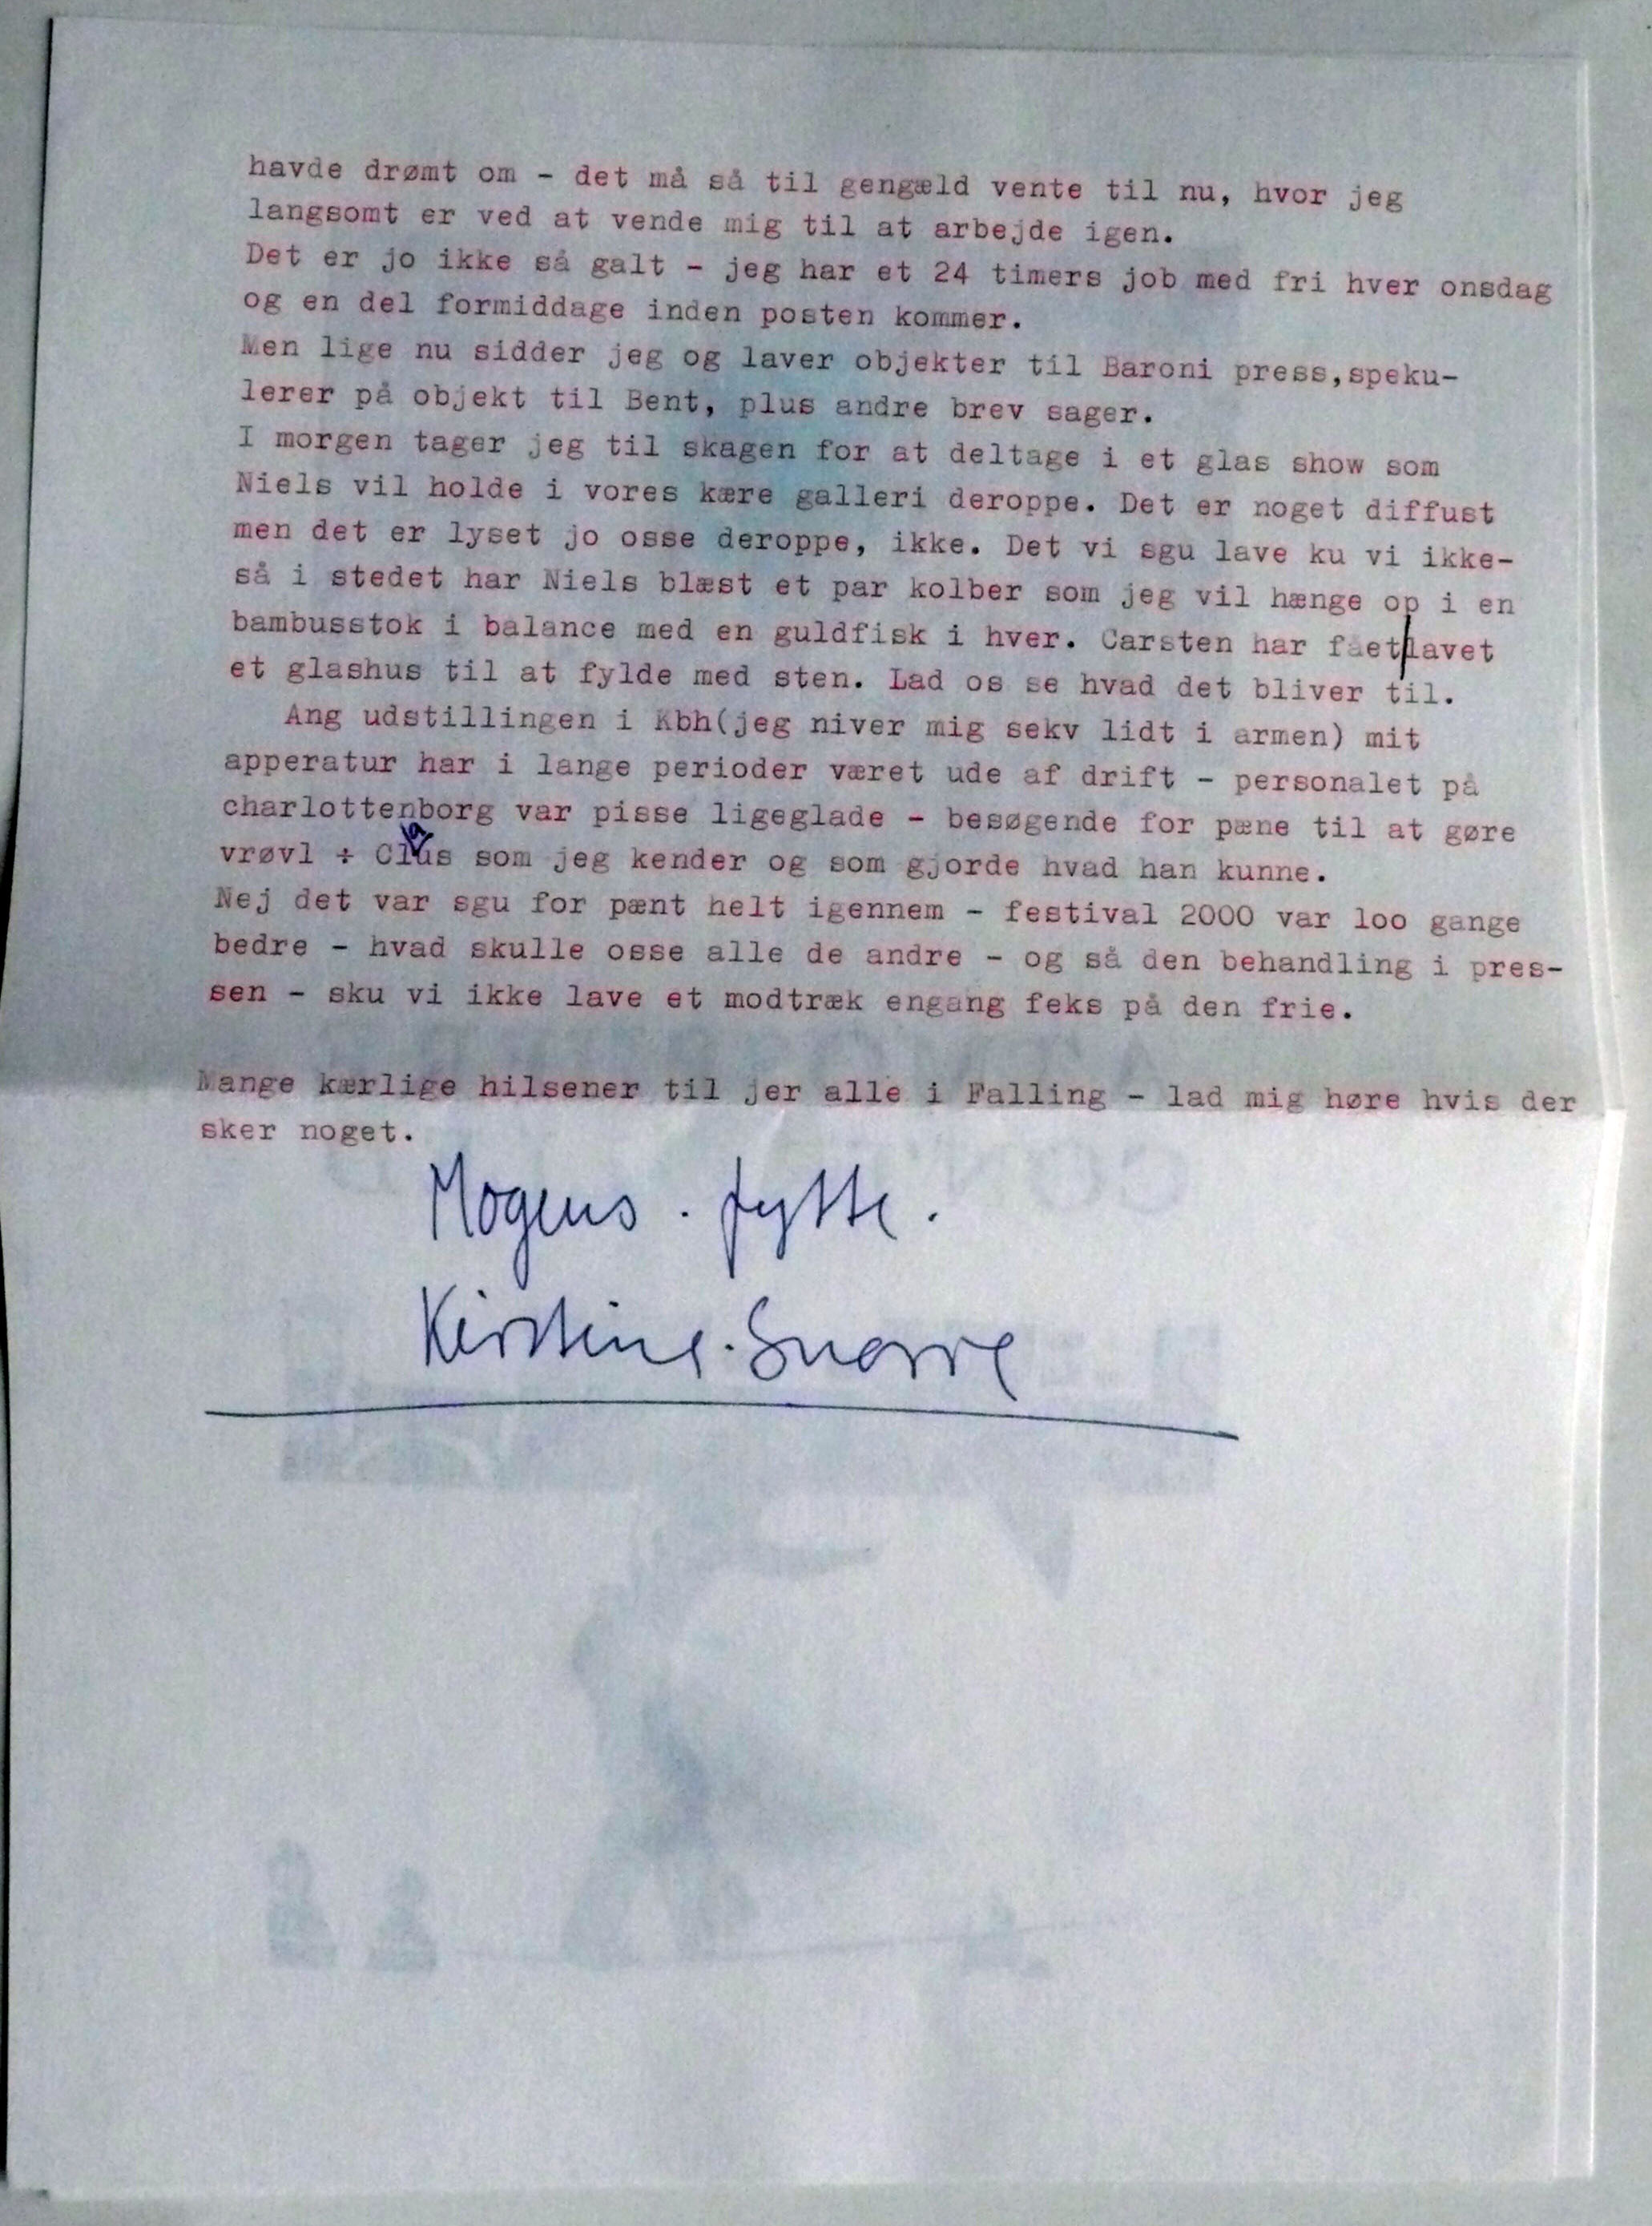 havde drømt om - det må så til gengæld vente til nu, hvor jeg
langsomt er ved at vende mig til at arbejde igen.
Det er jo ikke så galt - jeg har et 24 timers job med fri hver onsdag
og en del formiddage inden posten kommer.
Men lige nu sidder jeg og laver objekter til Baroni press,speku-
lerer på objekt til Bent, plus andre brev sager.
I morgen tager jeg til skagen for at deltage i et glas show som
Niels vil holde i vores kære galleri deroppe. Det er noget diffust
men det er lyset jo osse deroppe, ikke. Det vi sgu lave ku vi ikke-
så i stedet har Niels blæst et par kolber som jeg vil hænge op i en
bambusstok i balance med en guldfisk i hver. Carsten har fået lavet
et glashus til at fylde med sten. Lad os se hvad det bliver til.
Ang udstillingen i Kbh(jeg niver mig sekv lidt i armen) mit
apperatur har i lange perioder været ude af drift - personalet på
charlottenborg var pisse ligeglade - besøgende for pæne til at gøre
vrøvl ÷ Claus som jeg kender og som gjorde hvad han kunne.
Nej det var sgu for pænt helt igennem - festival 2000 var loo gange
bedre - hvad skulle osse alle de andre - og så den behandling i pres-
sen - sku vi ikke lave et modtræk engang feks på den frie.
Mange kærlige hilsener til jer alle i Falling - lad mig høre hvis der
sker noget.
Mogens . Jytte .
Kirstine . Snorre